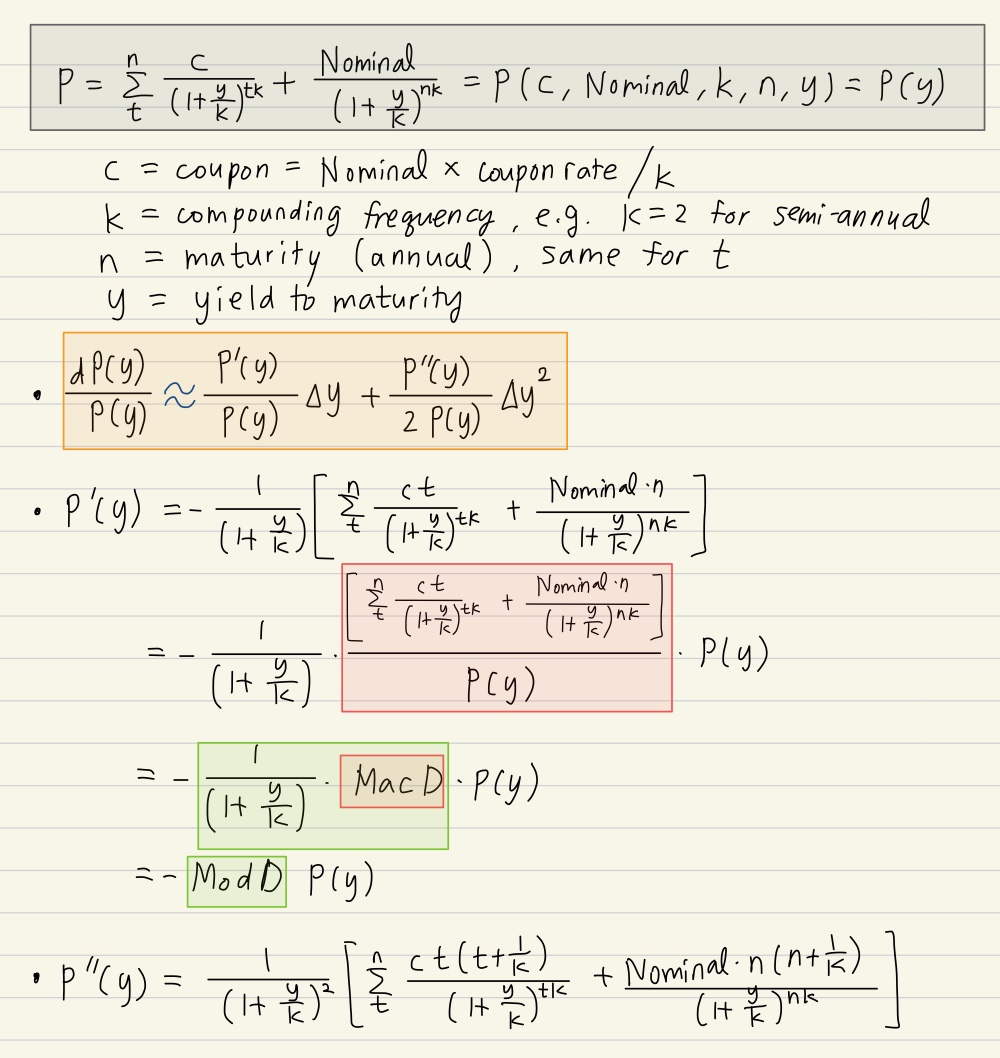 P = \sum_{t}^{n} \frac{c}{(1+\frac{y}{k})^{tk}} + \frac{Nominal}{(1+\frac{y}{k})^{nk}} = P(c, Nominal, k, n, y) = P(y)
c = coupon = Nominal × coupon rate / k
k = compounding frequency, e.g. k=2 for semi-annual
n = maturity (annual), same for t
y = yield to maturity
• \frac{dP(y)}{P(y)} ≈ \frac{P'(y)}{P(y)} Δy + \frac{P''(y)}{2 P(y)} Δy^2
• P'(y) = - \frac{1}{(1+\frac{y}{k})} [ \sum_{t}^{n} \frac{ct}{(1+\frac{y}{k})^{tk}} + \frac{Nominal·n}{(1+\frac{y}{k})^{nk}} ]
= - \frac{1}{(1+\frac{y}{k})} · \frac{[ \sum_{t}^{n} \frac{ct}{(1+\frac{y}{k})^{tk}} + \frac{Nominal·n}{(1+\frac{y}{k})^{nk}} ]}{P(y)} · P(y)
= - \frac{1}{(1+\frac{y}{k})} · MacD · P(y)
= - ModD P(y)
• P''(y) = \frac{1}{(1+\frac{y}{k})^2} [ \sum_{t}^{n} \frac{ct(t+\frac{1}{k})}{(1+\frac{y}{k})^{tk}} + \frac{Nominal·n(n+\frac{1}{k})}{(1+\frac{y}{k})^{nk}} ]